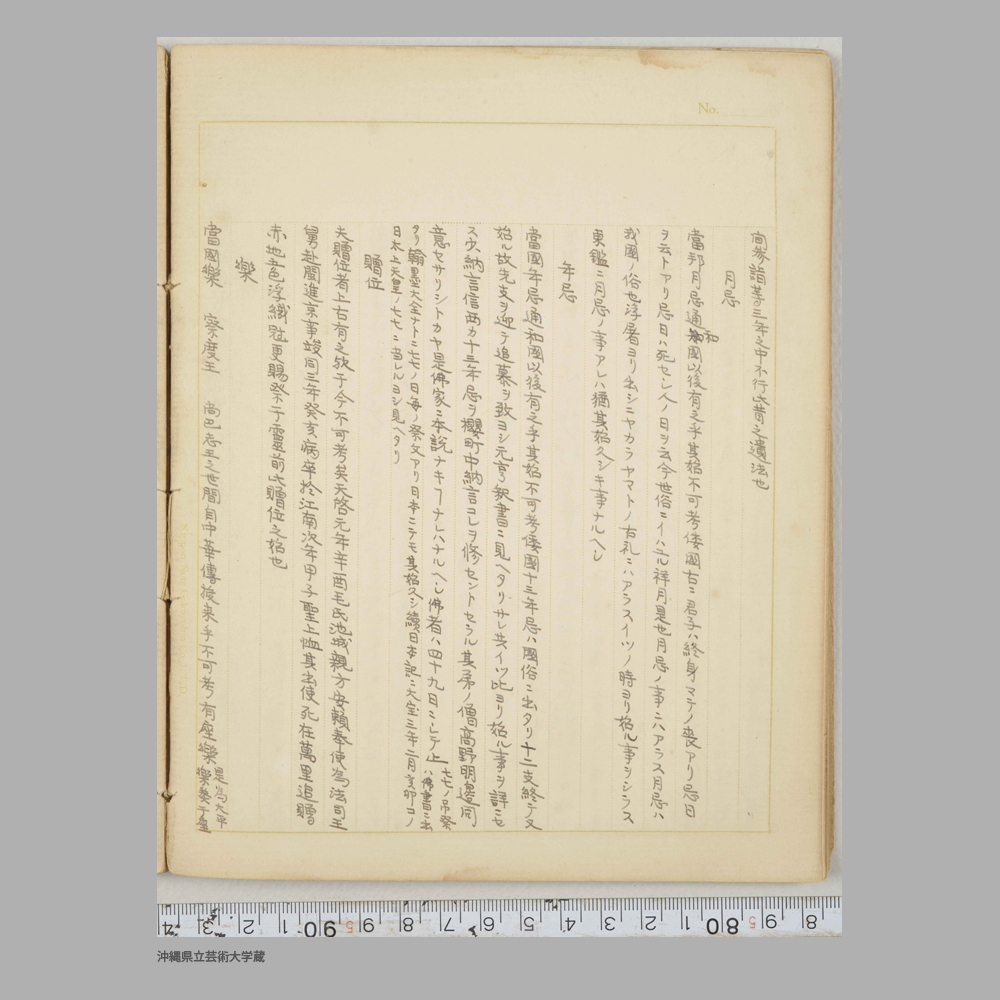 No.
宮参詣等三年之中不行此昔之遺法也
月忌
當邦月忌通和國以後有之乎其始不可考倭國古ニ君子ハ終身マテノ喪アリ忌日
ヲ云トアリ忌日ハ死セシ人ノ日ヲ云今世俗ニイハユル祥月是也月忌ノ事ニハアラス月忌ハ
我國ノ俗也浮屠ヨリ出シニヤカラヤマトノ古礼ニハアラスイツノ時ヨリ始ル事ヲシラス
東鑑ニ月忌ノ事アレハ猶其始久シキ事ナルヘシ
年忌
當國年忌通和國以後有之乎其始不可考倭國十三年忌ハ國俗ニ出タリ十二支終テ又
始ル故先支ヲ迎テ追慕ヲ致ヨシ元亨釈書ニ見ヘタリサレ共イツ比ヨリ始ル事ヲ詳ニセ
ス少納言信西カ十三年忌ヲ櫻町中納言コレヲ修セントセラル其弟ノ僧高野明遍同
意セサリシトカヤ是佛家ニ本説ナキフナレハナルヘシ佛者ハ四十九日ニシテ止七七ノ吊祭ハ佛書ニ出
タリ翰墨大全ナトニ七七ノ日毎ノ祭文アリ日本ニテモ其始久シ續日本記ニ大宝三年二月癸卯コノ
日太上天皇ノ七七ニ当レルヨシ見ヘタリ
贈位
夫贈位者上古有之欤于今不可考矣天啓元年辛酉毛氏池城親方安頼奉使為法司王
舅赴閩進京事竣同三年癸亥病卒於江南次年甲子聖上恤其出使死在萬里追贈
赤地五色浮織冠更賜祭于靈前此贈位之始也
樂
當國樂 察度王 尚巴志王之世間自中華傳授来乎不可考有座樂是為太平樂奏于聖
沖縄県立芸術大学蔵